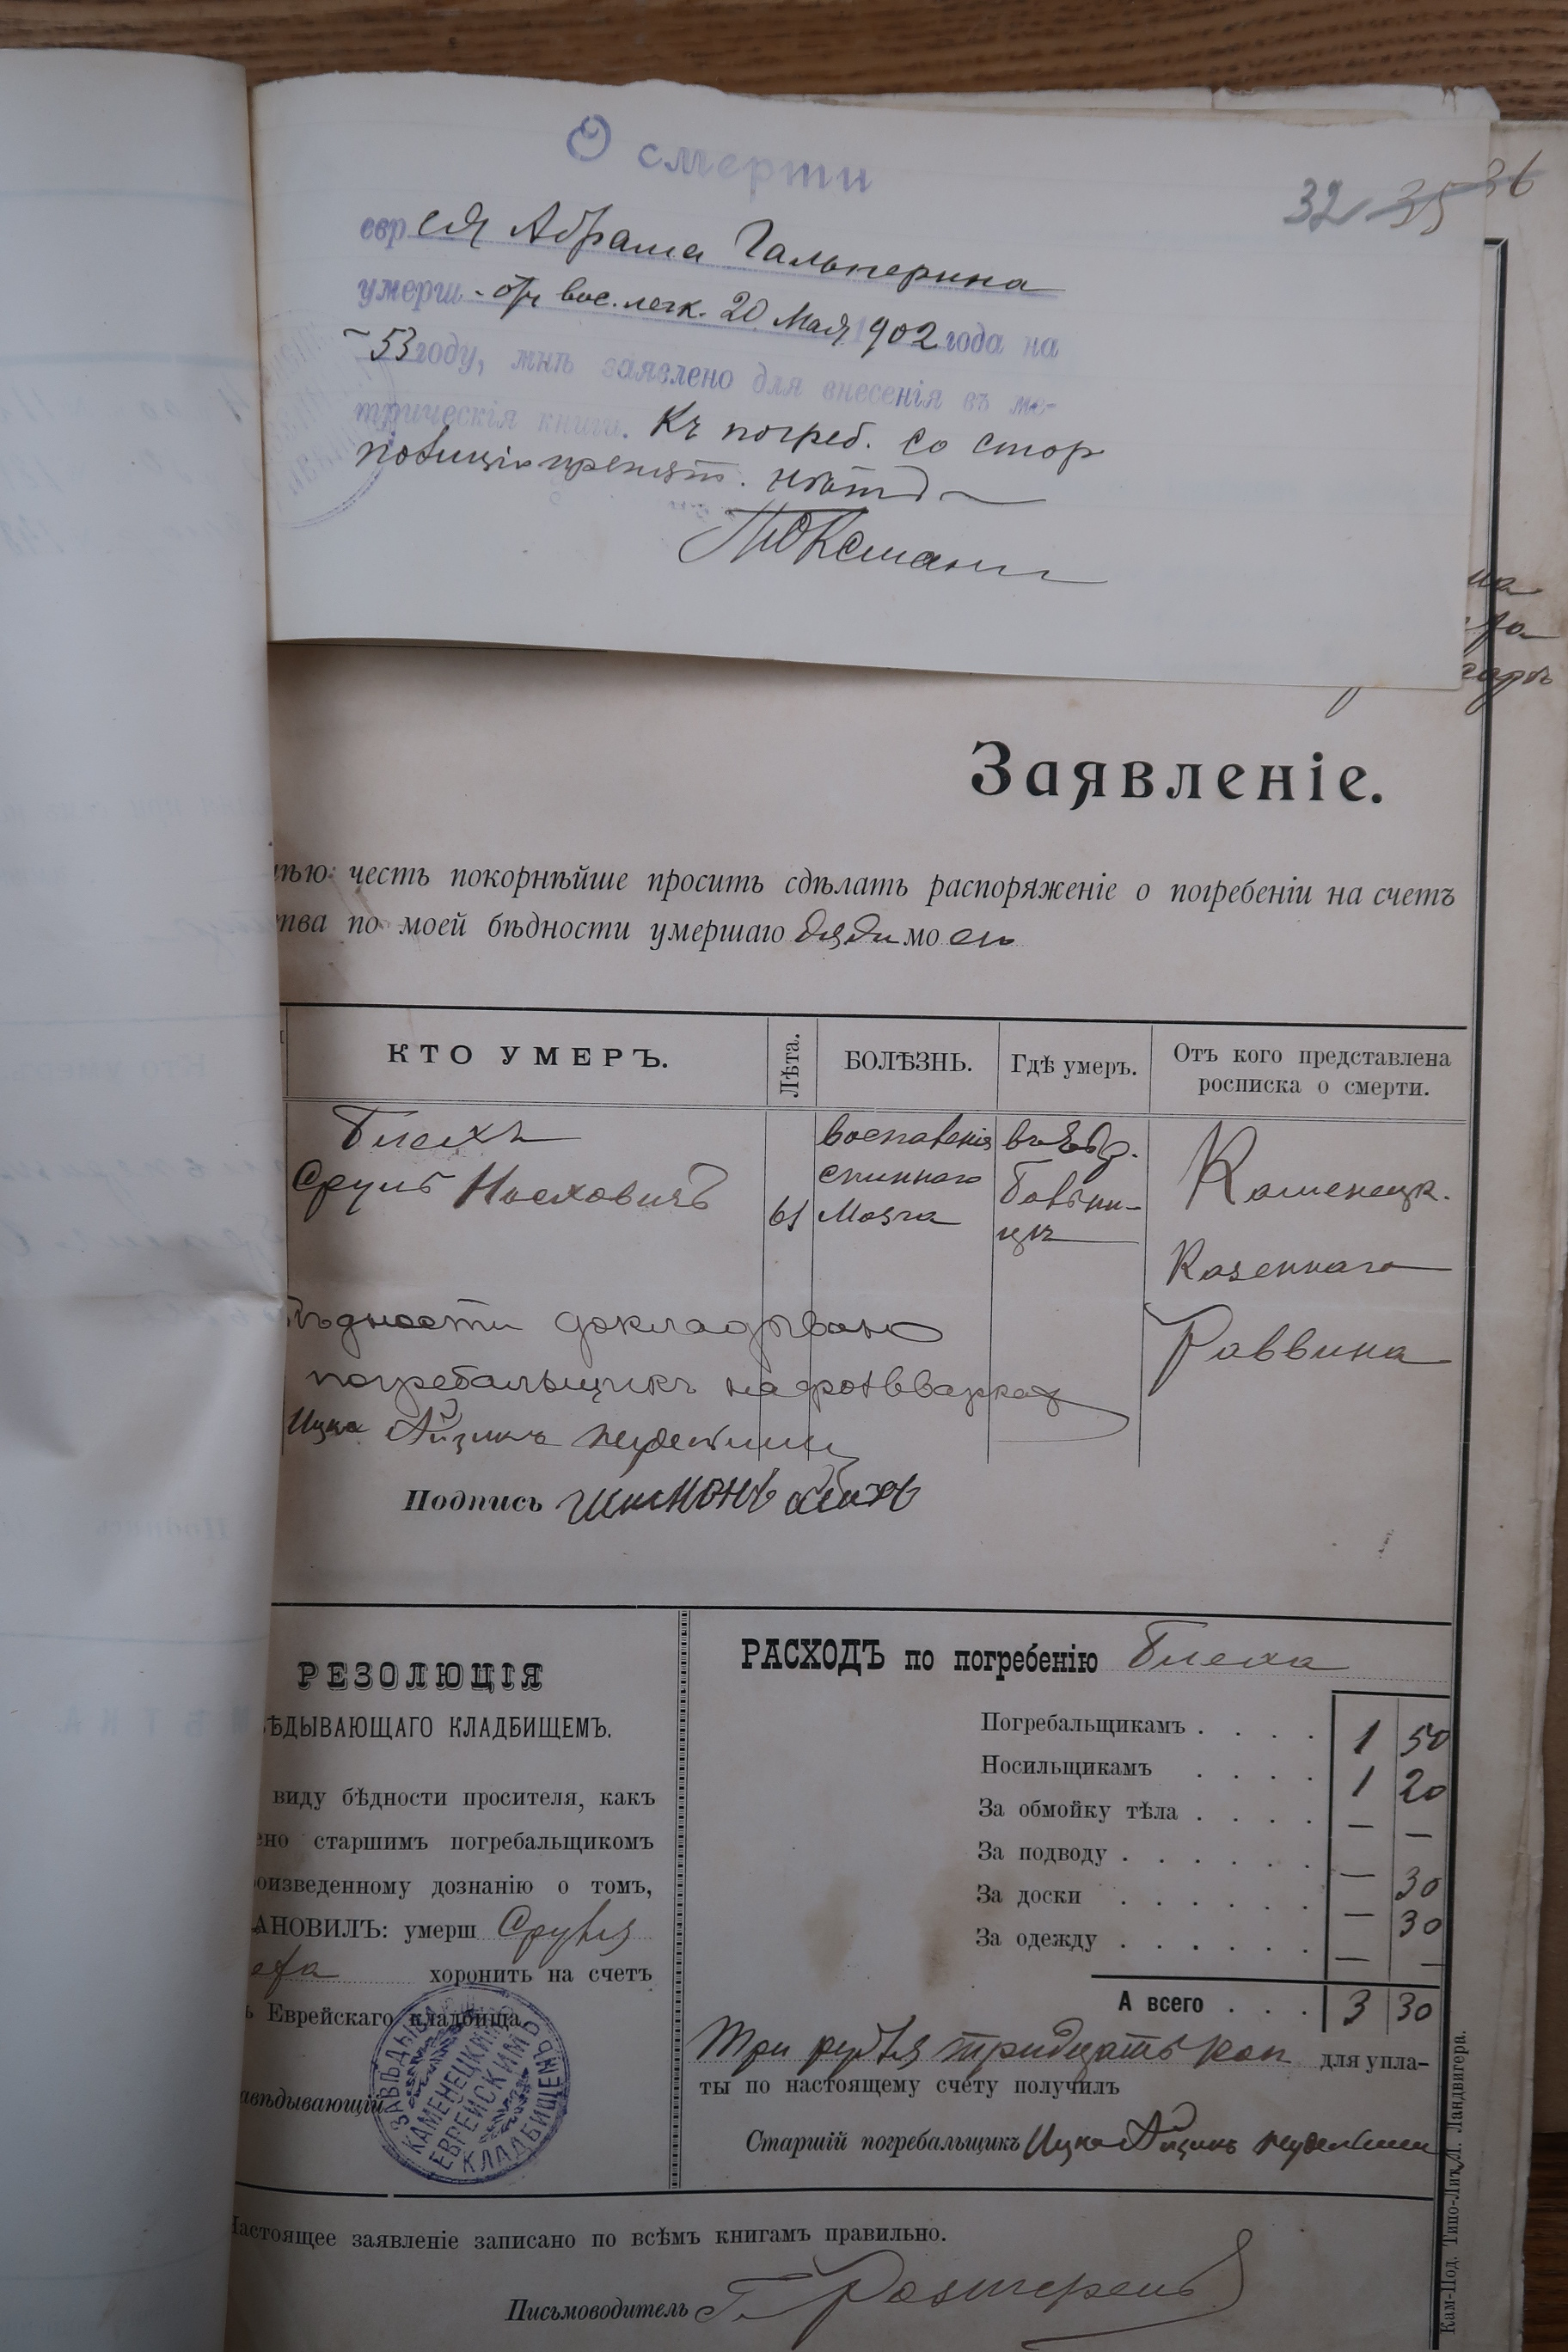 О смерти
32 35 36
еврея Абрама Гальперина
умерш. отъ вос. легк. 20 Мая 1902 года на
53 году, мнѣ заявлено для внесенія въ ме-
трическія книги. Къ погреб. со стор
полиціи препятст. нѣтъ
Заявленіе.
ѣю честь покорнѣйше проситъ сдѣлать распоряженіе о погребеніи на счетъ
тва по моей бѣдности умершаго дяди моего
КТО УМЕРЪ.
Лѣта.
БОЛѢЗНЬ.
Гдѣ умеръ.
Отъ кого представлена
росписка о смерти.
Блехъ
Сруль Иосховичъ
61
воспаленія
спинного
Мозга
въ Евр.
Больни-
цѣ
Каменецк.
Казеннаго
Раввина
бѣдности докладывано
погребальщикъ
Ицко Айзикъ
Подпись
РЕЗОЛЮЦІЯ
ѢДЫВАЮЩАГО КЛАДБИЩЕМЪ.
виду бѣдности просителя, какъ
ено старшимъ погребальщикомъ
оизведенному дознанію о томъ,
АНОВИЛЪ: умерш Сруля
еха хоронить на счетъ
ъ Еврейскаго кладбища.
авѣдывающій
ЗАВѢДЫВАЮЩІЙ
КАМЕНЕЦКИМЪ
ЕВРЕЙСКИМЪ
КЛАДБИЩЕМЪ
РАСХОДЪ по погребенію Блеха
Погребальщикамъ . . . . 1 50
Носильщикамъ . . . . 1 20
За обмойку тѣла . . . . — —
За подводу . . . . . . — 30
За доски . . . . . . — 30
За одежду . . . . . . — —
А всего . . . 3 30
Три рубля тридцать коп для упла-
ты по настоящему счету получилъ
Старшій погребальщикъ Ицко Айзикъ
Настоящее заявленіе записано по всѣмъ книгамъ правильно.
Письмоводитель
Кам-Под. Типо-Лит. Л. Ландвигера.